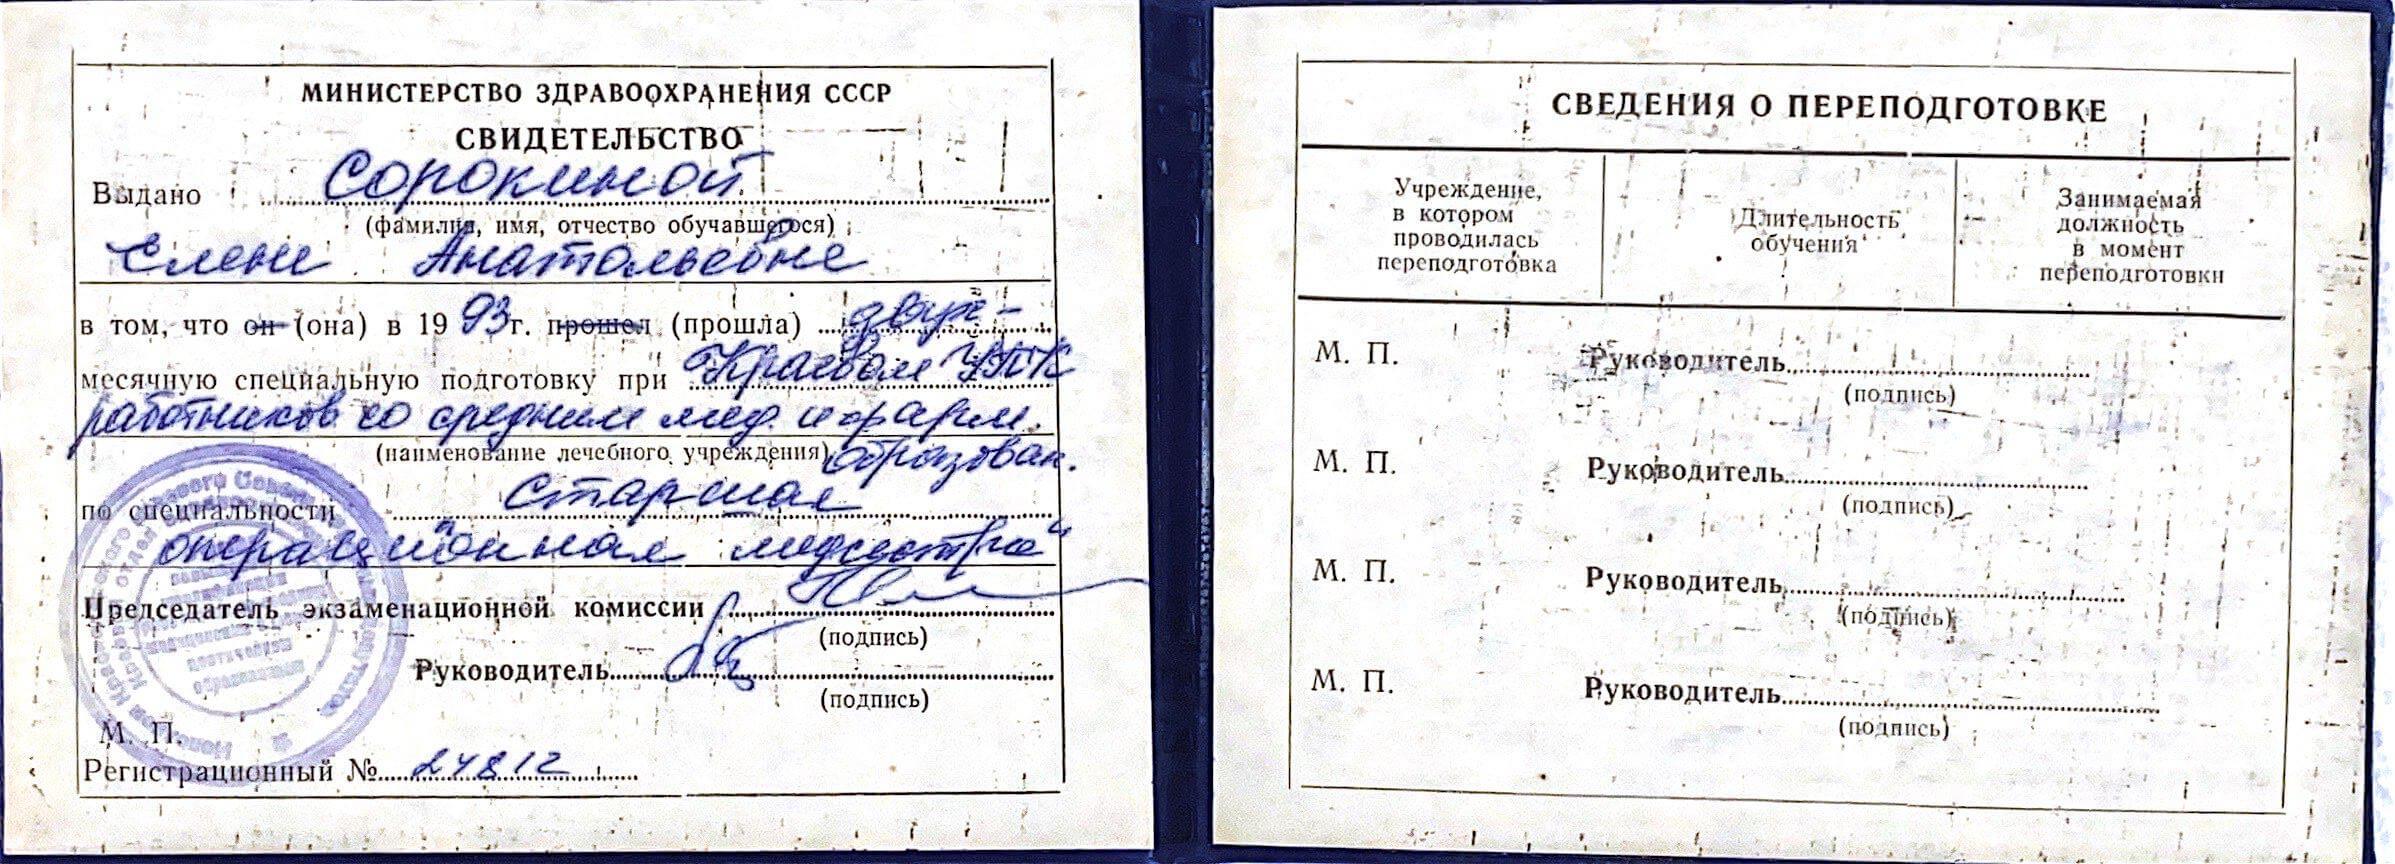 МИНИСТЕРСТВО ЗДРАВООХРАНЕНИЯ СССР
СВИДЕТЕЛЬСТВО
Выдано Сорокиной
(фамилия, имя, отчество обучавшегося)
Елене Анатольевне
в том, что он (она) в 1993г. прошел (прошла) двух-
месячную специальную подготовку при Краевом УПК
работников со средним мед. и фарм.
(наименование лечебного учреждения) образован.
по специальности Старшая
операционная медсестра"
Председатель экзаменационной комиссии
(подпись)
Руководитель
(подпись)
М. П.
Регистрационный № 24812
СВЕДЕНИЯ О ПЕРЕПОДГОТОВКЕ
Учреждение,
в котором
проводилась
переподготовка
Длительность
обучения
Занимаемая
должность
в момент
переподготовки
М. П. Руководитель
(подпись)
М. П. Руководитель
(подпись)
М. П. Руководитель
(подпись)
М. П. Руководитель
(подпись)